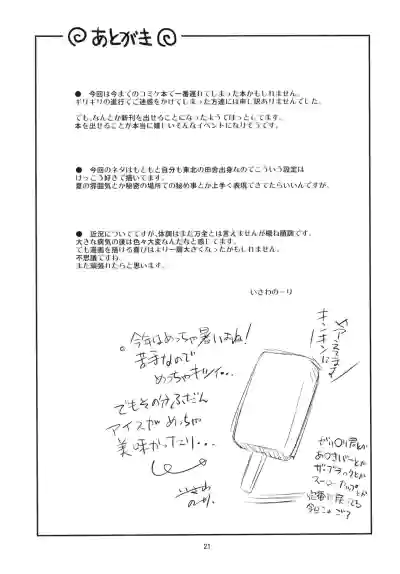 あとがき
● 今回は今までのコミケ本で一番遅れてしまった本かもしれません。
ギリギリの進行でご迷惑をかけてしまった方達には申し訳ありませんでした。
でも、なんとか新刊を出せることになったようでほっとしてます。
本を出せることが本当に嬉しいそんなイベントになりそうです。
● 今回のネタはもともと自分も東北の田舎出身なのでこういう設定は
けっこう好きで描いてます。
夏の雰囲気とか秘密の場所での秘め事とか上手く表現できてたらいいんですが。
● 近況についてですが、体調はまだ万全とは言えませんが概ね順調です。
大きな病気の後は色々大変なんだなと感じてます。
でも漫画を描ける喜びはより一層大きくなったかもしれません。
不思議ですね。
また頑張れたらと思います。
いさわのーり
今年はめっちゃ暑いよね!
苦手なので
めっちゃキツイ・・・
でもその分ふだん
アイスがめっちゃ
美味かったり・・・
いさわ
のーり。
キンキンに
ガリ○リ君とか
あずきバーとか
ザ・ブラックとか
スーパーカップとか
21